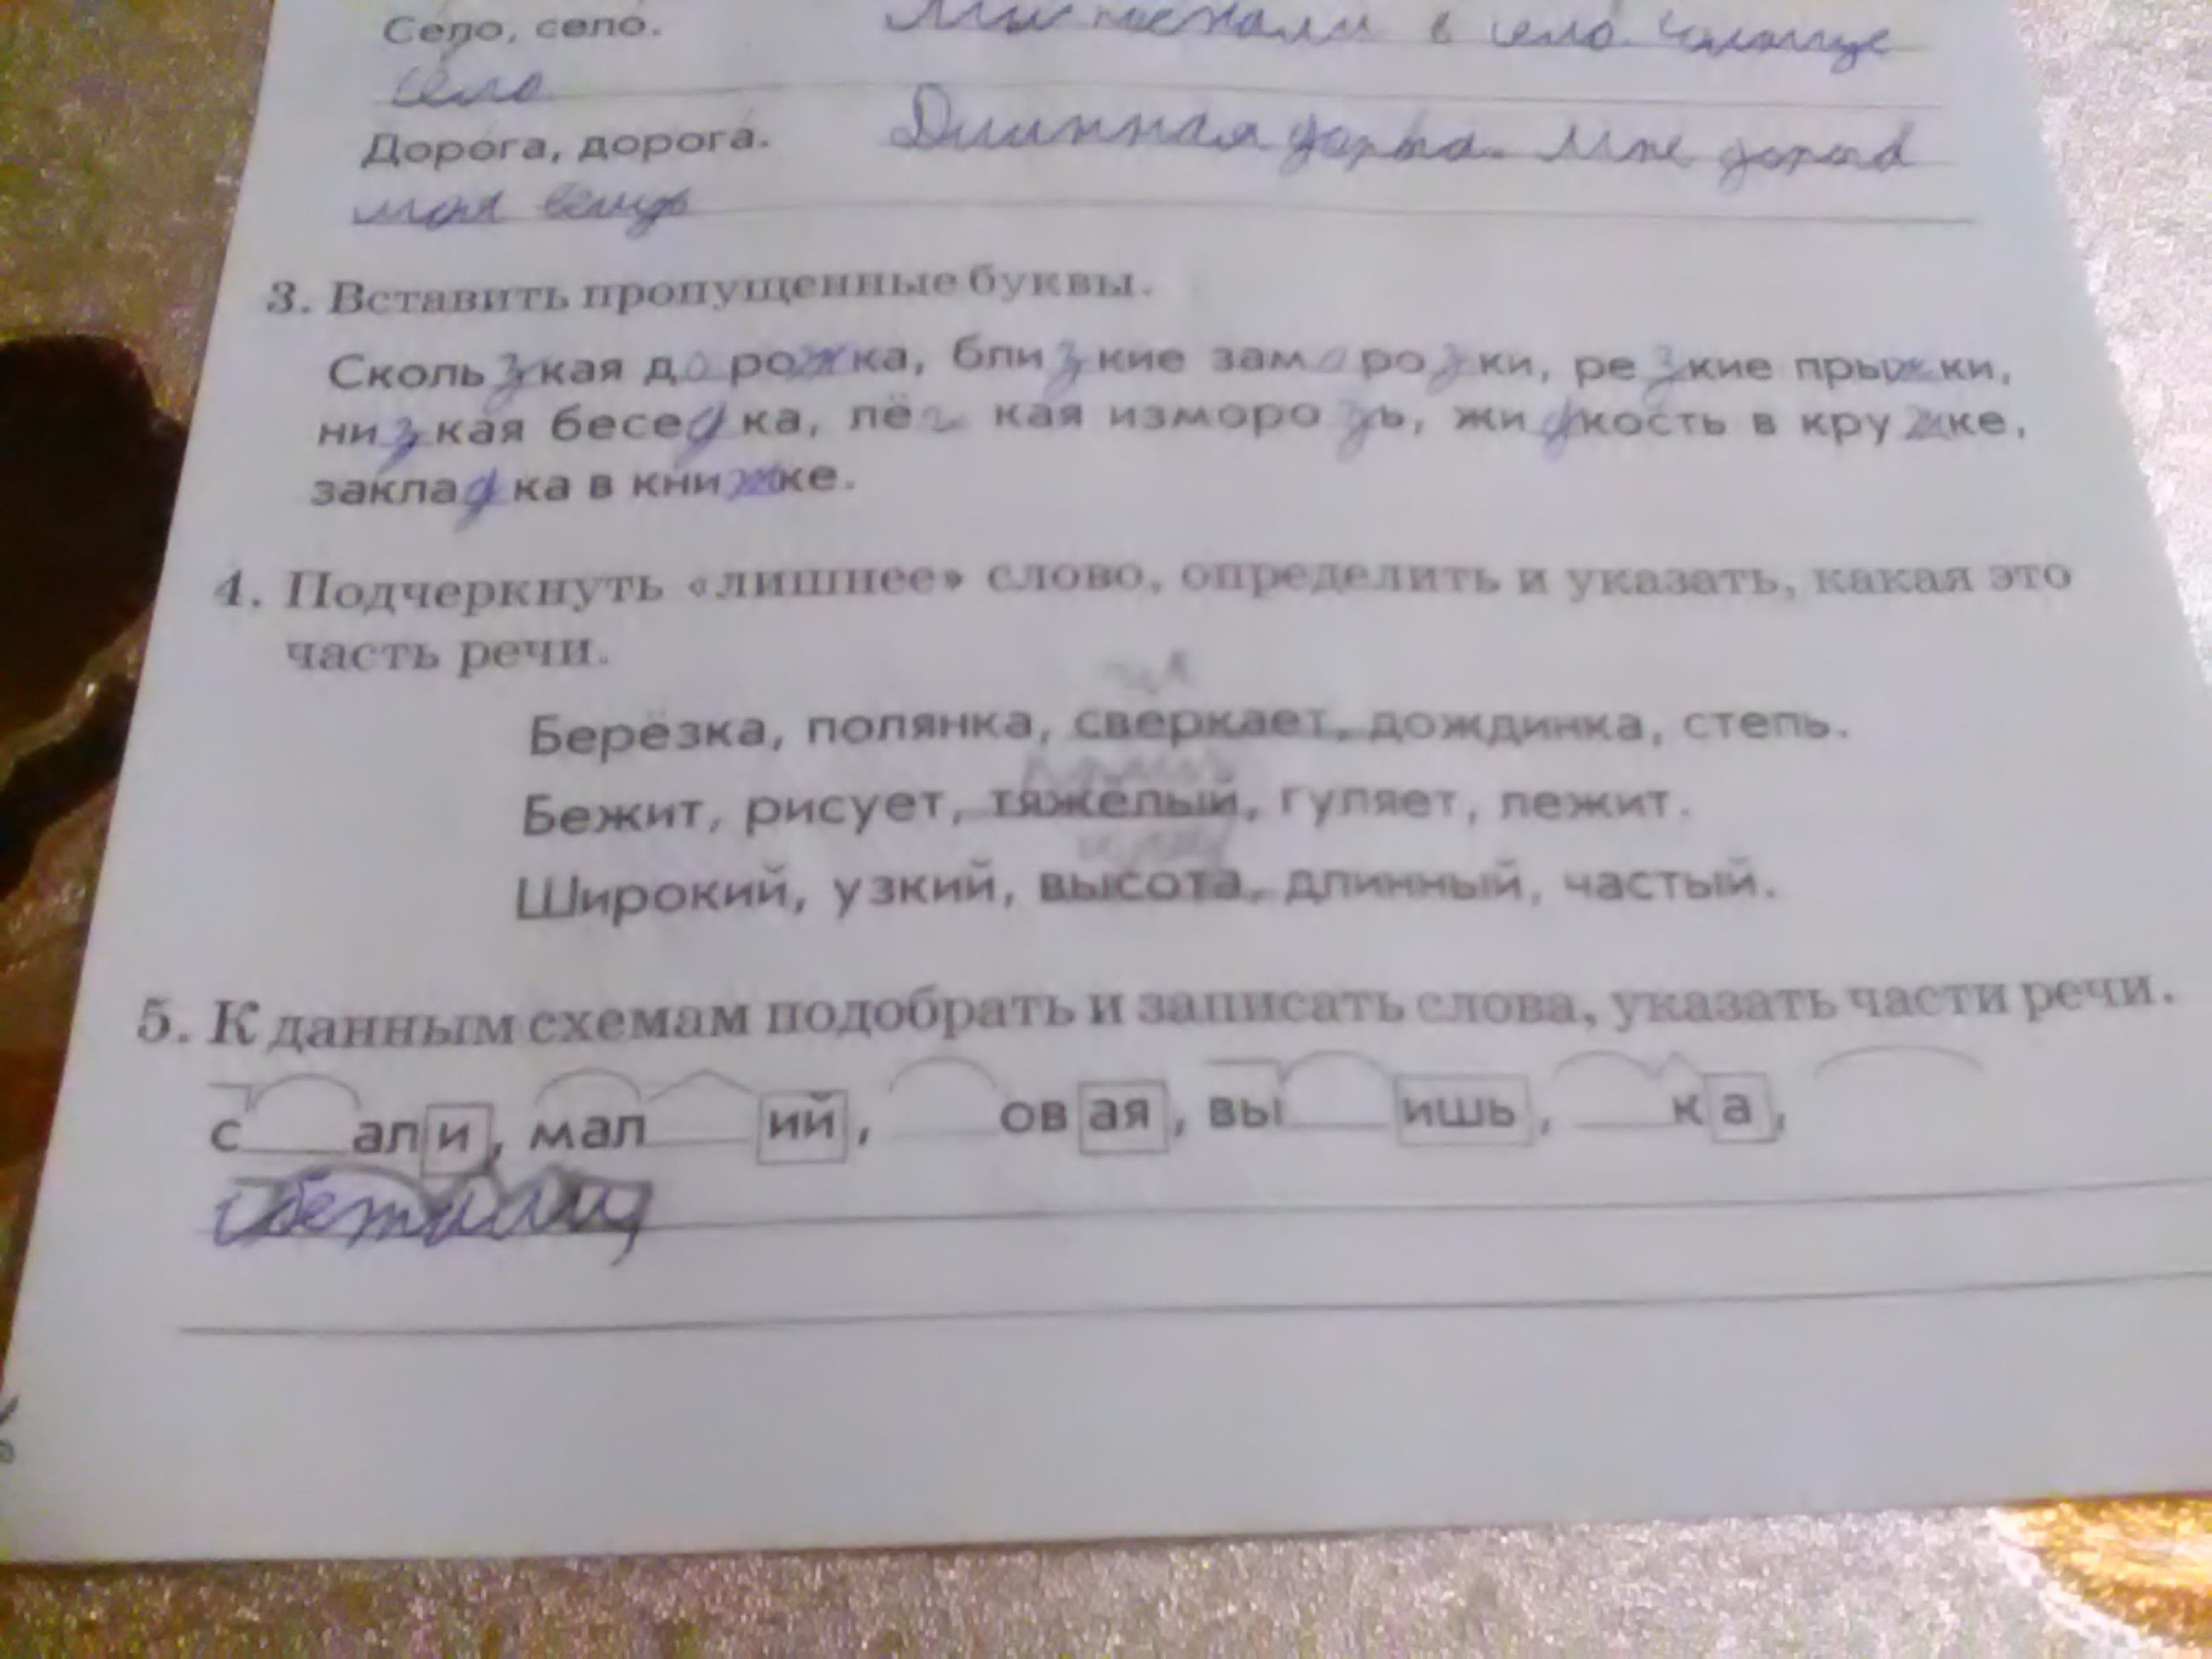 Село, село. Мы поехали в село. Солнце
село
Дорога, дорога. Длинная дорога. Мне дорога
моя вещь
3. Вставить пропущенные буквы.
Скользкая дорожка, близкие заморозки, резкие прыжки,
низкая беседка, лёгкая изморозь, жидкость в кружке,
закладка в книжке.
4. Подчеркнуть «лишнее» слово, определить и указать, какая это
часть речи.
Берёзка, полянка, сверкает, дождинка, степь.
Бежит, рисует, тяжёлый, гуляет, лежит.
Широкий, узкий, высота, длинный, частый.
5. К данным схемам подобрать и записать слова, указать части речи.
с___али, мал___ий, ___овая, вы___ишь, ___ка,
сбежали,